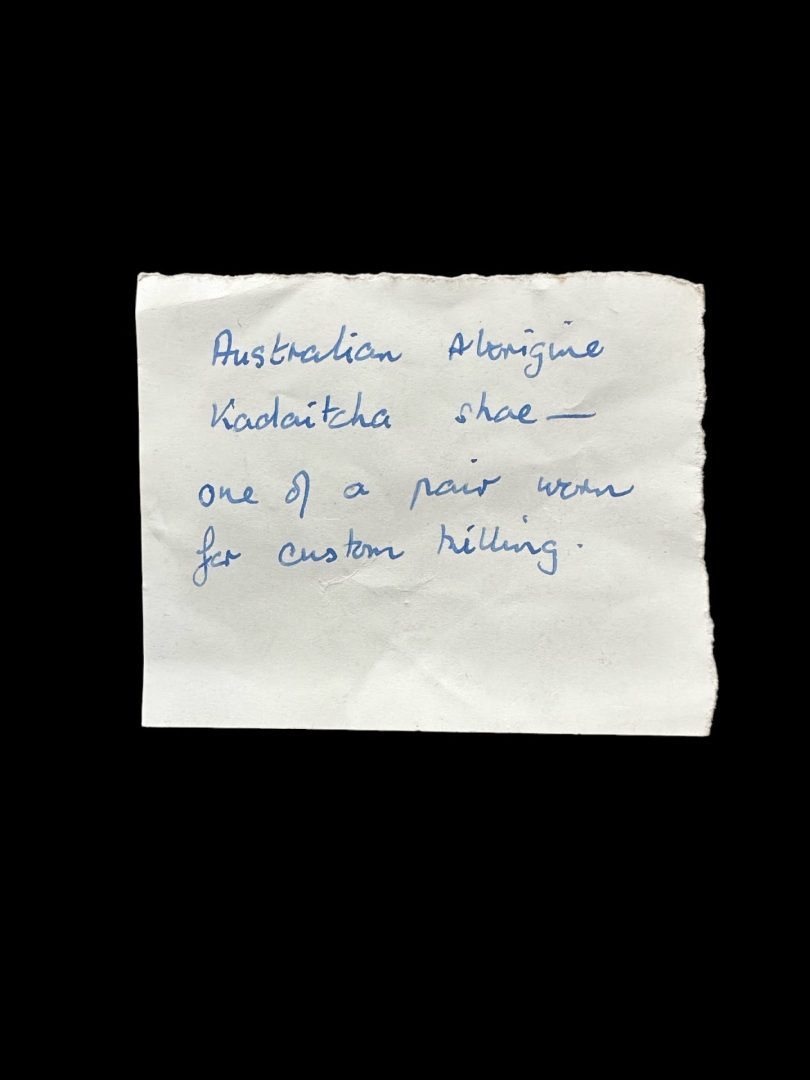 Australian Aborigine
Kadaitcha shoe —
one of a pair worn
for custom killing.